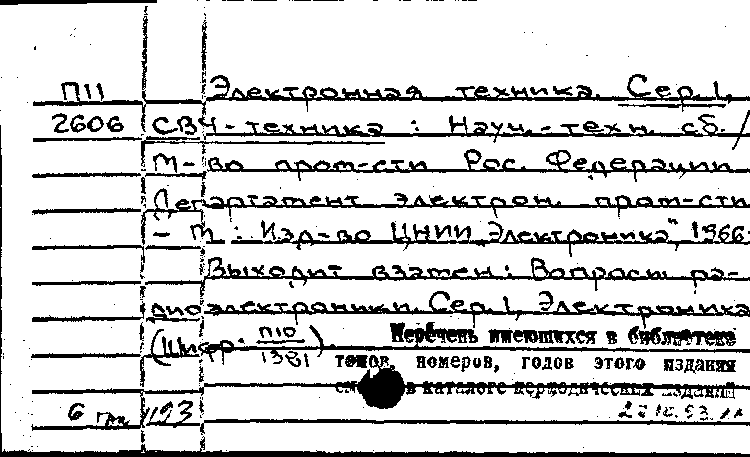 П11 Электронная техника. Сер. 1,
2606 СВЧ-техника : Науч.-техн. сб. /
М-во пром-сти Рос. Федерации
Департамент электрон. пром-сти
– М. : Изд-во ЦНИИ „Электроника", 1966-
Выходит взамен: Вопросы ра-
диоэлектроники. Сер. 1, Электроника
(Шифр: П10/1381). Перечень имеющихся в библиотеке
томов, номеров, годов этого издания
в каталоге периодических изданий
6 1193